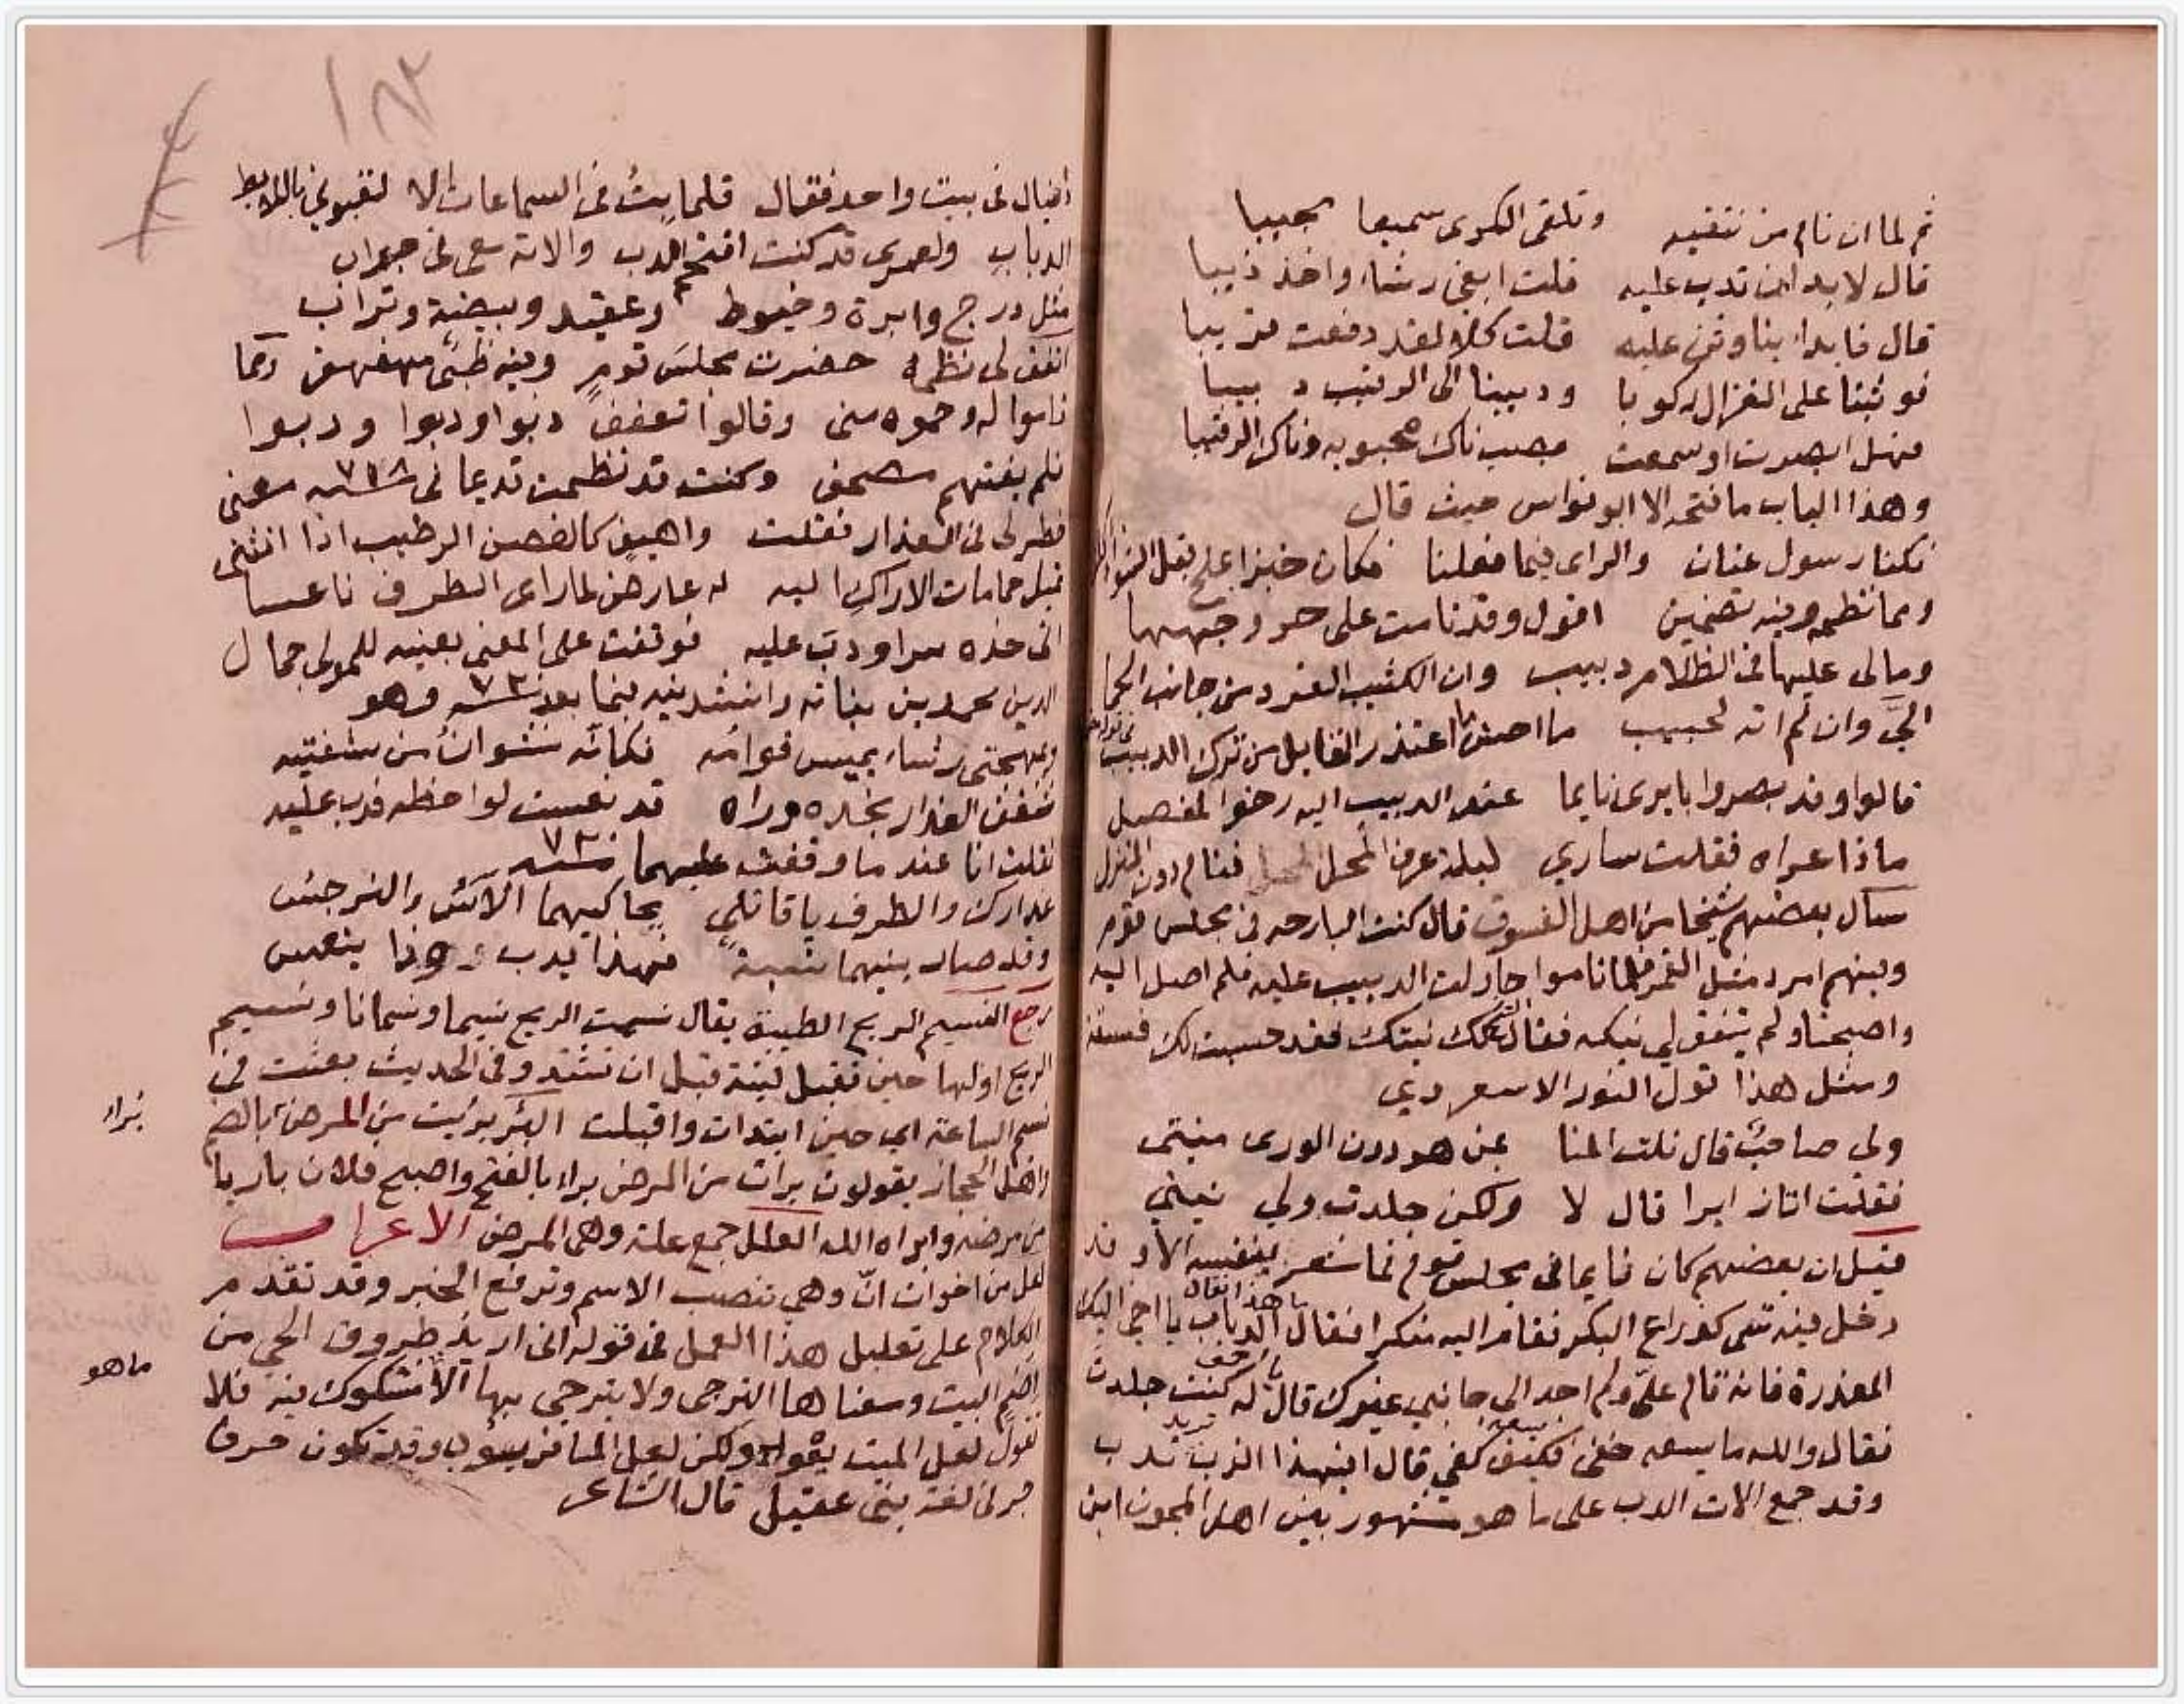 ثم لما ان نام من نتقيه وتلقى الكرى سميعا مجيبا
قال لا بد ان تدب عليه قلت ابغي رشاء واخذ ذيبا
قال فابدا بنا وثن عليه قلت كلا لقد دفعت قريبا
فوثبنا على الغزال ركوبا ودببنا الى الرقيب دبيبا
فهل ابصرت او سمعت بصب ناك محبوبه وناك الرقيبا
وهذا الباب ما فتحه الا ابو نواس حيث قال
نكنا رسول عنان والراى فيما فعلنا فكان خبزا بملح قبل الشوا
ومما نظمه وفيه تضمين اقول وقد نامت على حر وجهها
ومالى عليها فى الظلام دبيب وان الكثيب الفرد من جانب الحما
الىّ وان لم اته لحبيب ما احسن ما اعتذر القايل من ترك الدبيب
قالوا وقد بصروا بايرى نايما عند الدبيب اليه رخو المفصل
ماذا عراه فقلت ساري ليلة عرف المحل فنام دون المنزل
سال بعضهم شيخا من اهل الفسوق قال كنت البارحه فى مجلس قوم
وفيهم امرد مثل القمر فلما ناموا حاولت الدبيب عليه فلم اصل اليه
واصبحنا ولم يتفق لي نيكه فقال تلك نيتك فقد حسبت لك فسقة
ومثل هذا قول النور الاسعردي
ولي صاحب قال نلت المنا بمن هو دون الورى منيتى
فقلت اتاز ايرا قال لا ولكن جلدت ولي نيتي
قيل ان بعضهم كان نايما فى مجلس قوم فما شعر بنفسه الا وقد
دخل فيه شى كذراع البكر فقام اليه منكرا فقال ما هذا فقال الدباب يا اخى اليك
المعذرة فانه قام علىّ ولم احد الى جانبي غيرك قال له كنت جلدت
فقال والله ما يسعه خفى فكيف يسعه كفي قال افبهذا الزب تريد تدب
وقد جمع الات الدب على ما هو مشهور بين اهل المجون ابن
١٨٢
دانيال فى بيت واحد فقال قلما بت فى السماعات الا لقبونى باللايط
الدباب ولعمرى قد كنت افتح الدب والاته معى فى جراب
مثل درج وابرة وخيوط وعقيد وبيضة وتراب
اتفق لى نظمه حضرت مجلس قوم وفيه ظبى مهفهف ربما
ناموا له وحموه منى وقالوا تعفف دبوا ودبوا ودبوا
فلم يفتهم مصحف وكنت قد نظمت قديما فى سنة ٧١٨ معنى
خطر لى فى العذار فقلت واهيف كالغصن الرطيب اذا انثنى
تميل حمامات الاراك اليه له عارض لما راى الطرف ناعسا
اتى خده سرا ودب عليه فوقفت على المعنى بعينه للمولى جمال
الدين محمد بن نباته وانشدنيه فيما بعد سنة ٧٣ وهو
وبمهجتى رشاء يميس قوامه فكانه نشوان من شفتيه
شغف العذار بخده وراه قد نعست لواحظه فدب عليه
فقلت انا عند ما وقفت عليهما سنة ٧٣
عذارك والطرف يا قاتلي يحاكيهما الآس والنرجس
وقد صار بينهما نسبة فهذا يدب وذا ينعس
رجع النسيم الريح الطيبة يقال نسمت الريح نسيما ونسمانا ونسيم
الريح اولها حين تقبل لينة قبل ان تشتد وفى الحديث بعثت فى
نسم الساعة اي حين ابتدات واقبلت البرء بريت من المرض بالضم
براء
واهل الحجاز يقولون برات من المرض براء بالفتح واصبح فلان باريا
من مرضه وابراه الله العلل جمع علة وهى المرض الاعراب
لعل من اخوات انّ وهي تنصب الاسم وترفع الخبر وقد تقدم
الكلام على تعليل هذا العمل فى قوله انى اريد طروق الحي من
ما هو
اضم البيت ومعناها الترجى ولا يترجى بها الا مشكوك فيه فلا
تقول لعل الميت يقوم ولكن لعل المسافر يووب وقد تكون حرف
جر فى لغة بنى عقيل قال الشاعر